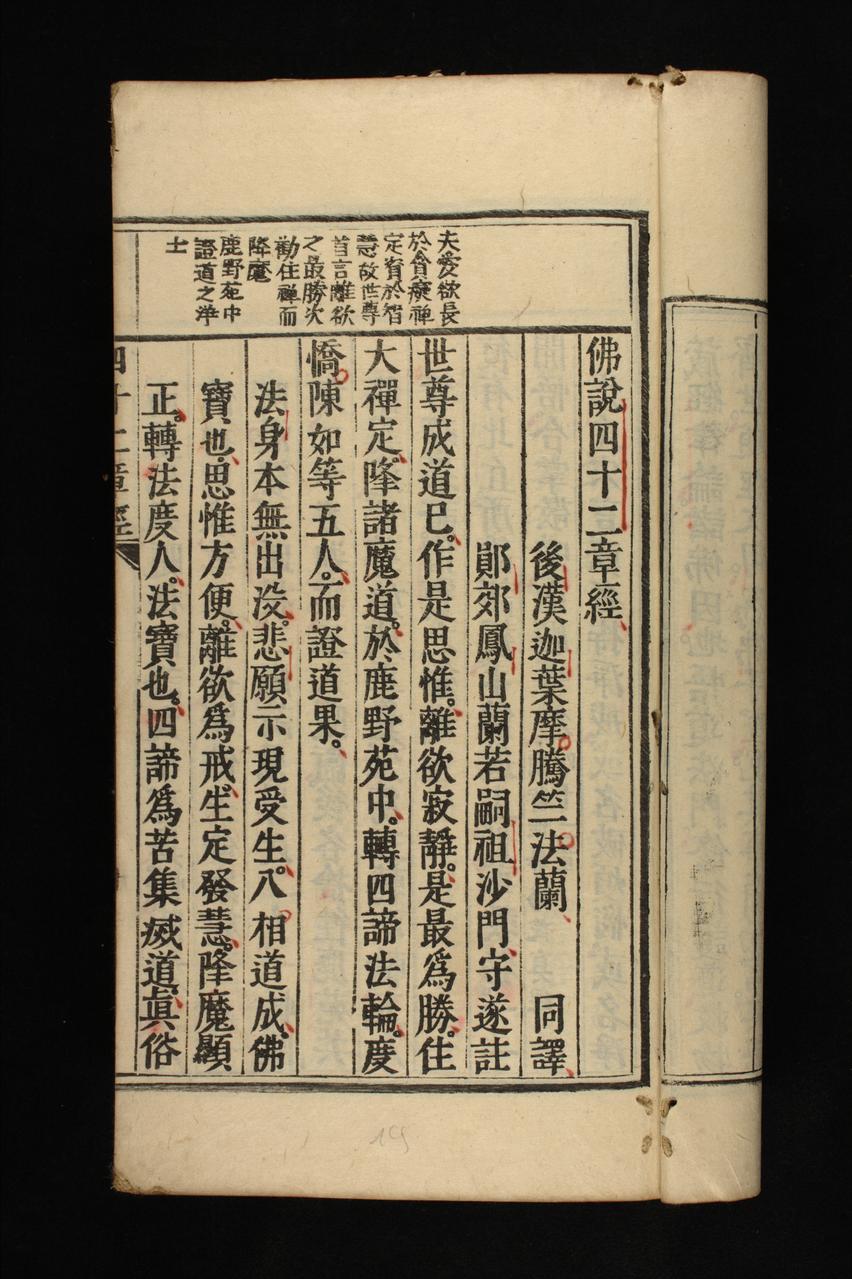 佛說四十二章經
後漢迦葉摩騰竺法蘭　同譯
鄖郊鳳山蘭若嗣祖沙門守遂註
世尊成道已。作是思惟。離欲寂靜。是最爲勝。住
大禪定。降諸魔道。於鹿野苑中。轉四諦法輪。度
憍陳如等五人。而證道果。
法身本無出没。悲願示現受生。八相道成。佛
寶也。思惟方便。離欲爲戒。生定發慧。降魔顯
正。轉法度人。法寶也。四諦爲苦集滅道。眞俗
四十二章經
夫愛欲長
於貪癡禪
定資於智
慧故世尊
首言離欲
之最勝次
勸住禪而
降魔
鹿野苑中
證道之淨
土